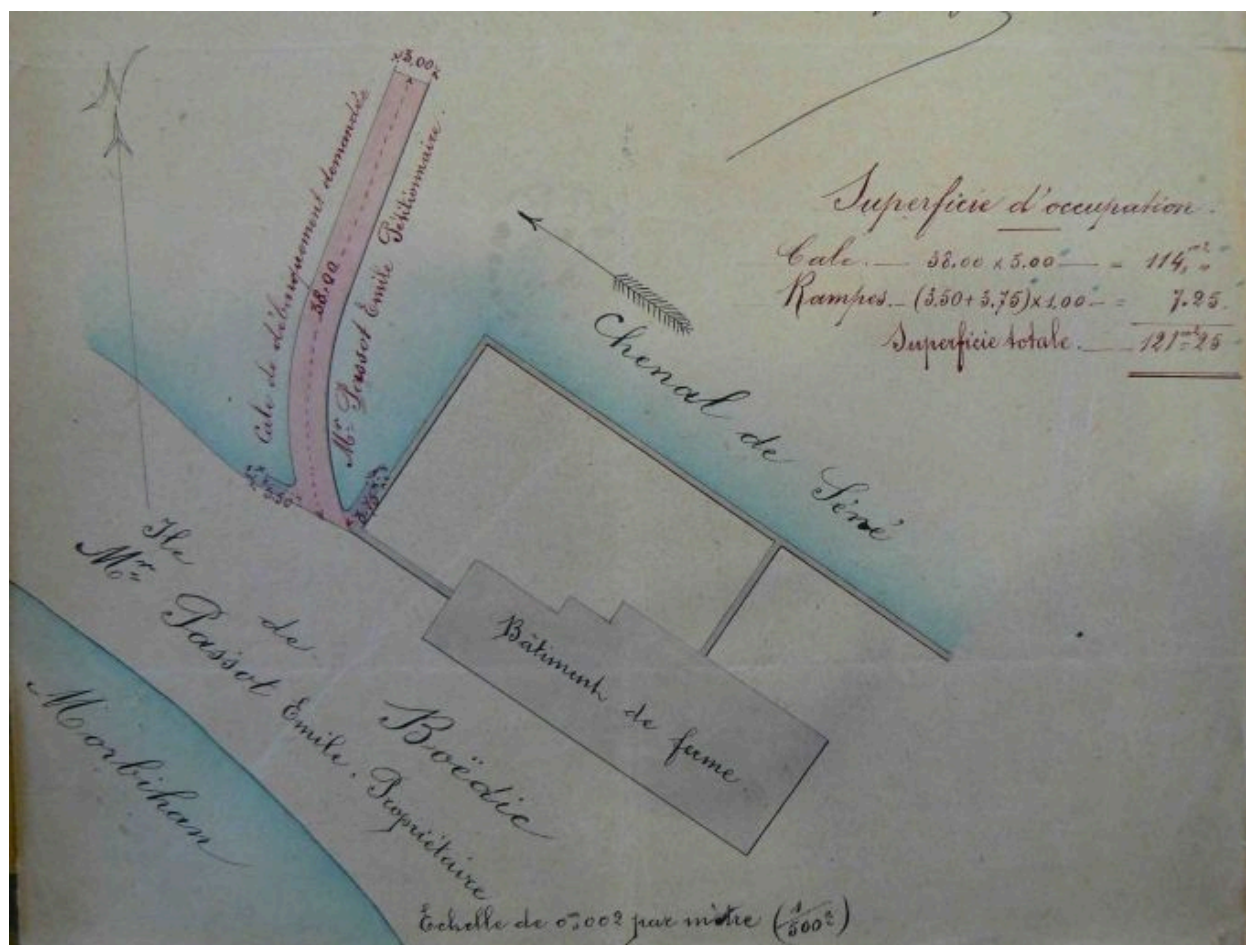 3,00
Cale de débarquement demandée
38,00
Mr Passot Emile Pétitionnaire.
3,50
3,75
Superficie d'occupation.
Cale. — 38.00 x 3.00 — = 114, m2 "
Rampes. — (3.50 + 3,75) x 1.00 — = 7.25.
Superficie totale. — 121 m2 25
Chenal de Séné
Ile de Boëdic
Mr Passot Emile. Propriétaire
Bâtiment de ferme
Morbihan
Echelle de 0m,002 par mètre (1/500e)